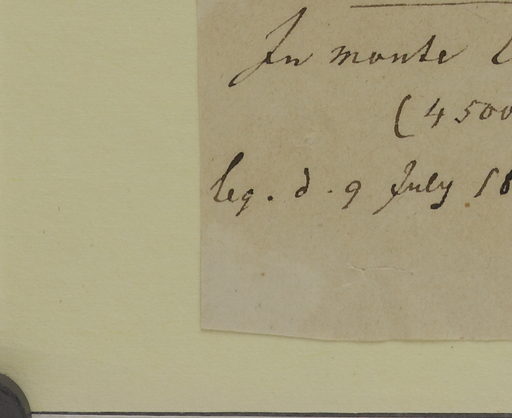 In monte
(4500
leg. d. 9 July 18